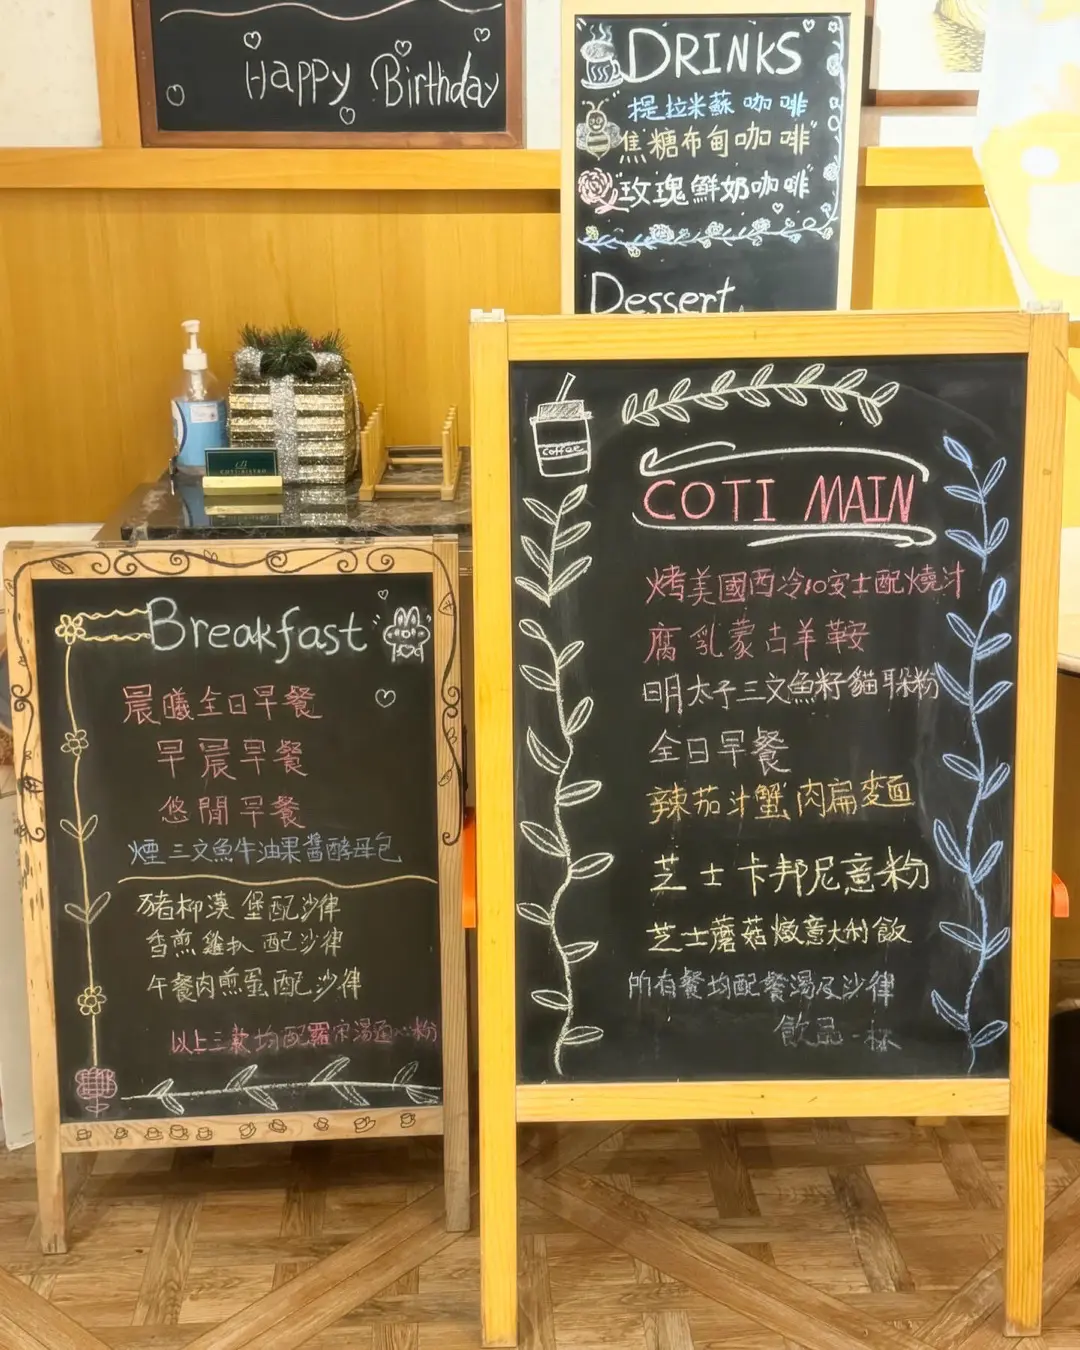 Happy Birthday
DRINKS
提拉米蘇咖啡
焦糖布甸咖啡
玫瑰鮮奶咖啡
Dessert
COTI BISTRO
Breakfast
晨曦全日早餐
早晨早餐
悠閒早餐
煙三文魚牛油果醬酵母包
豬柳漢堡配沙律
香煎雞扒配沙律
午餐肉煎蛋配沙律
以上三款均配羅宋湯通心粉
Coffee
COTI MAIN
烤美國西冷10安士配燒汁
腐乳蒙古羊鞍
明太子三文魚籽貓耳朵粉
全日早餐
辣茄汁蟹肉扁麵
芝士卡邦尼意粉
芝士蘑菇燉意大利飯
所有餐均配餐湯及沙律
飲品一杯